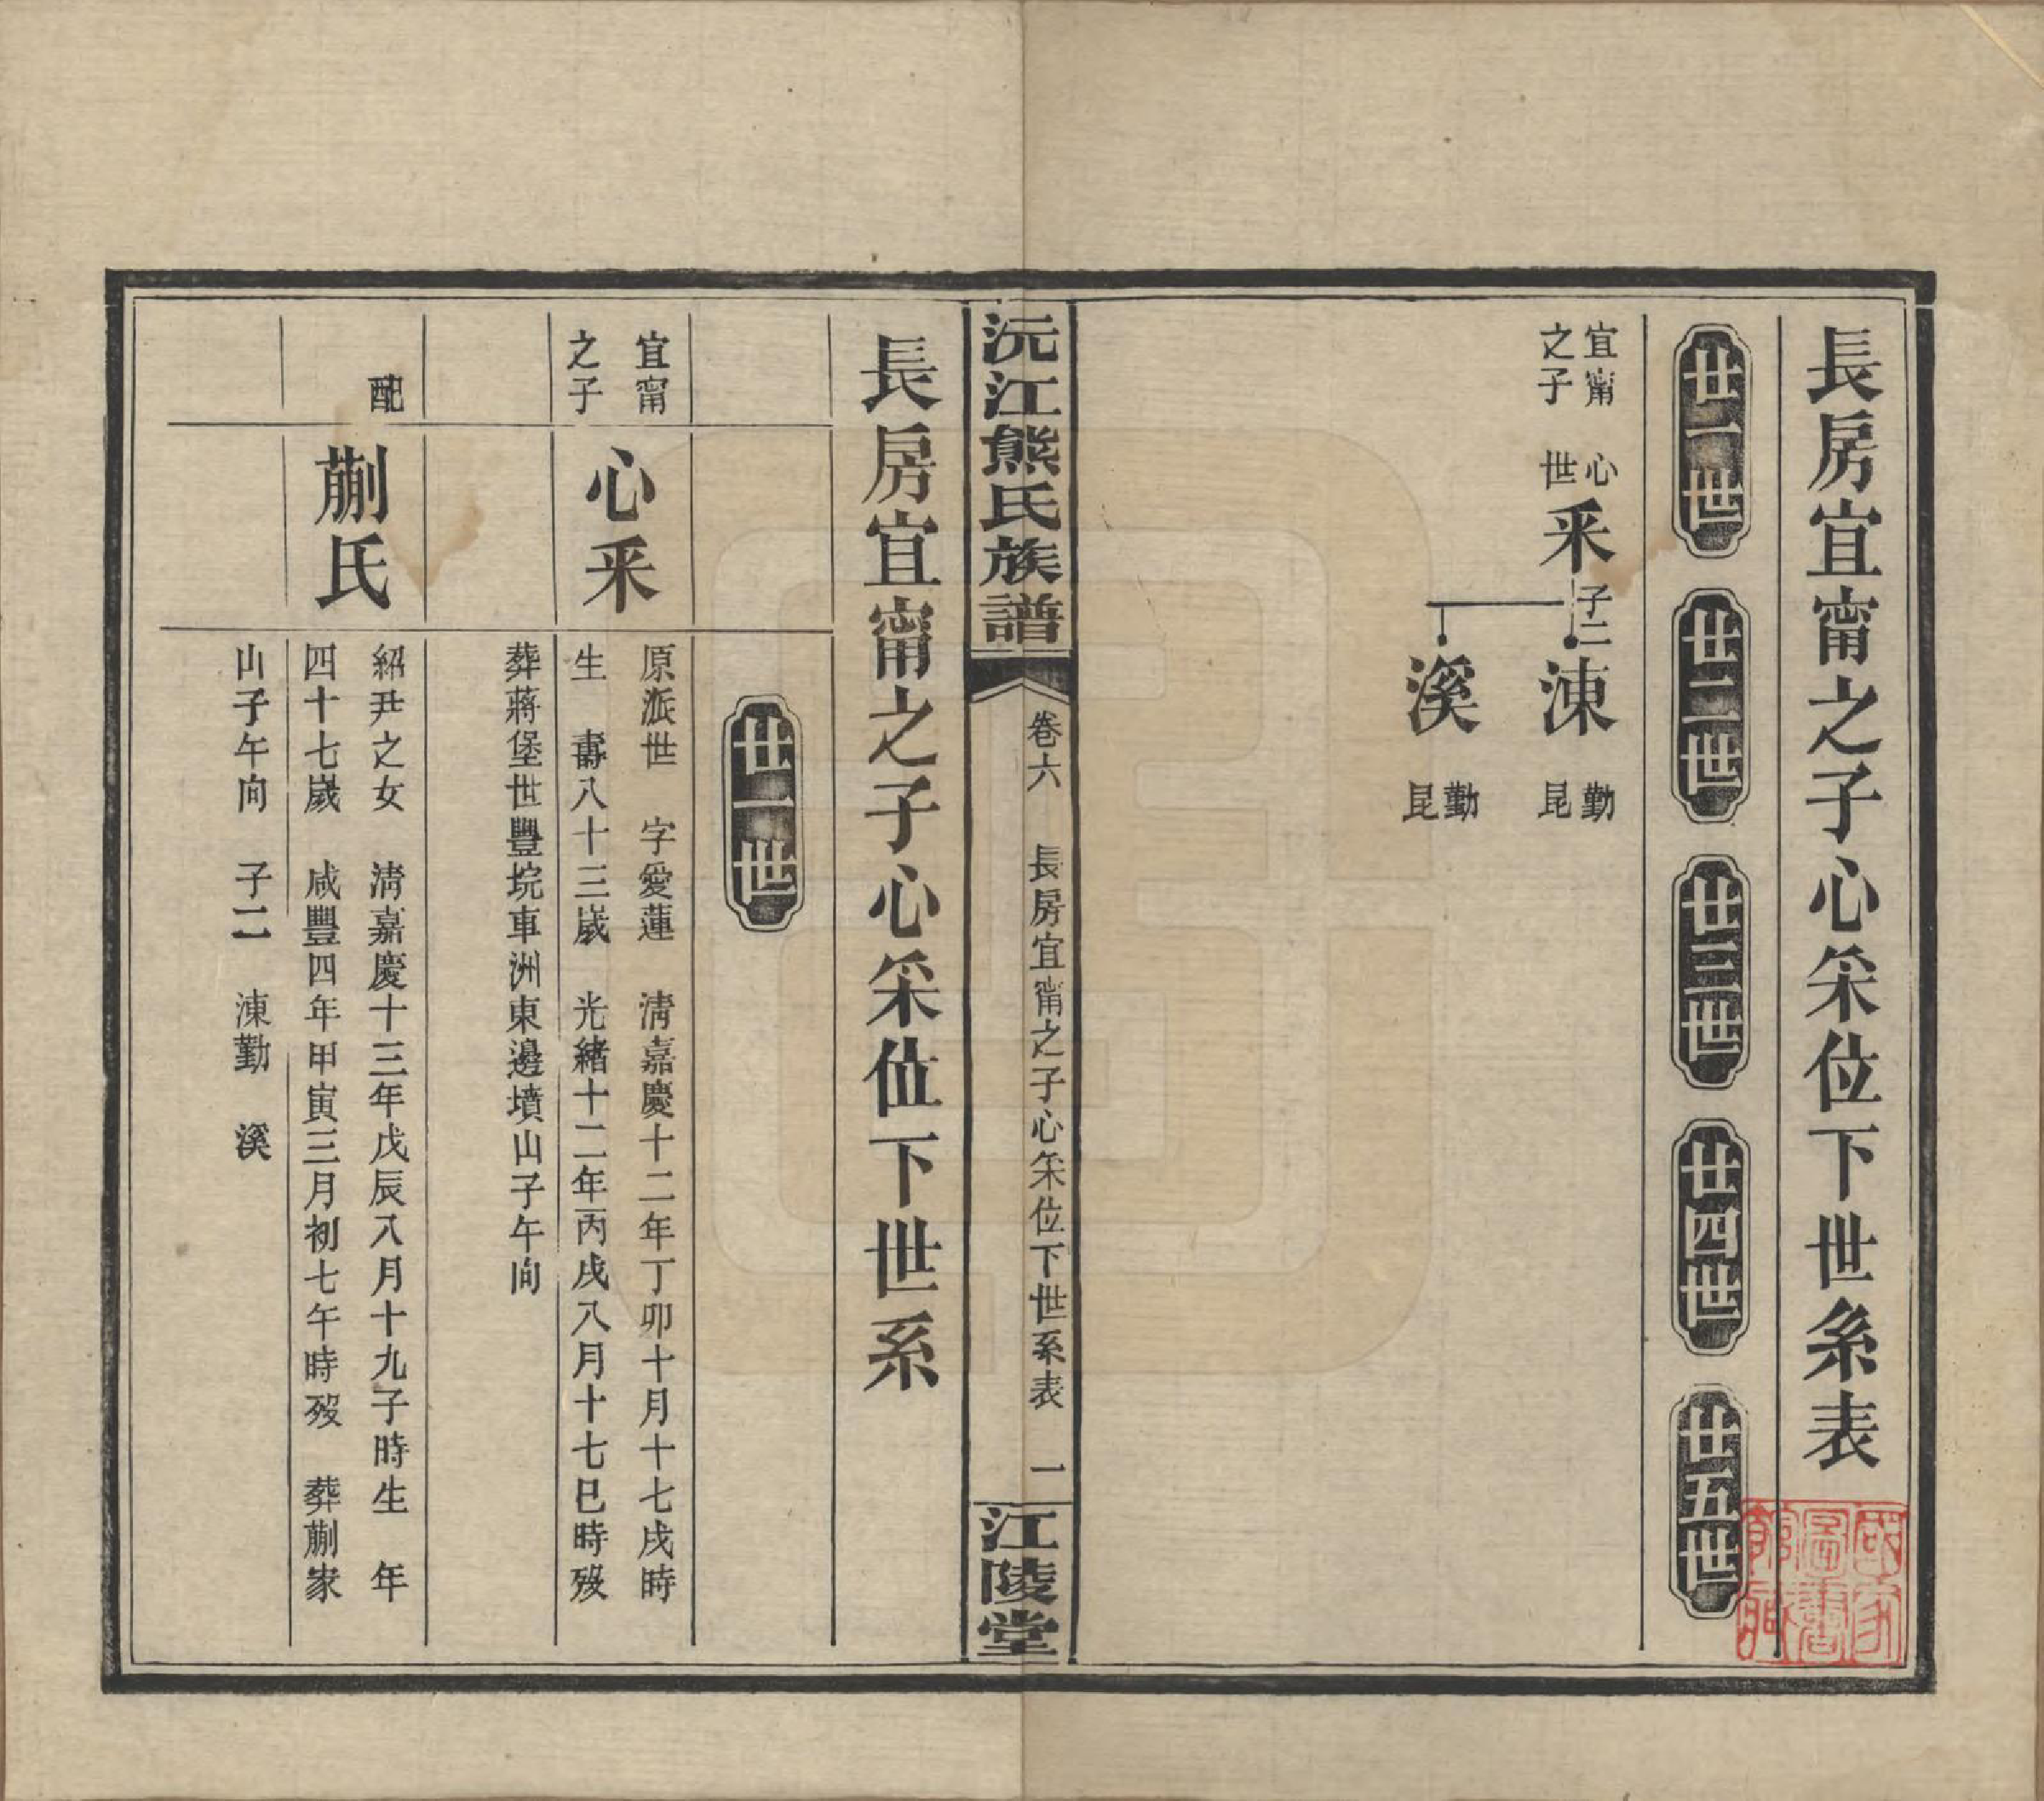 長房宜甯之子心采位下世系表
廿一世
廿二世
廿三世
廿四世
廿五世
宜甯
之子
心
世
采
子二
涷
勤
昆
溪
勤
昆
沅江熊氏族譜
卷六
長房宜甯之子心采位下世系表
一
江陵堂
長房宜甯之子心采位下世系
廿一世
宜甯
之子
心采
原派世 字愛蓮 淸嘉慶十二年丁卯十月十七戌時
生 壽八十三歲 光緒十二年丙戌八月十七巳時歿
葬蔣堡世豐垸車洲東邊墳山子午向
配
蒯氏
紹尹之女 淸嘉慶十三年戊辰八月十九子時生 年
四十七歲 咸豐四年甲寅三月初七午時歿 葬蒯家
山子午向 子二 涷勤 溪
國家
圖書
館藏